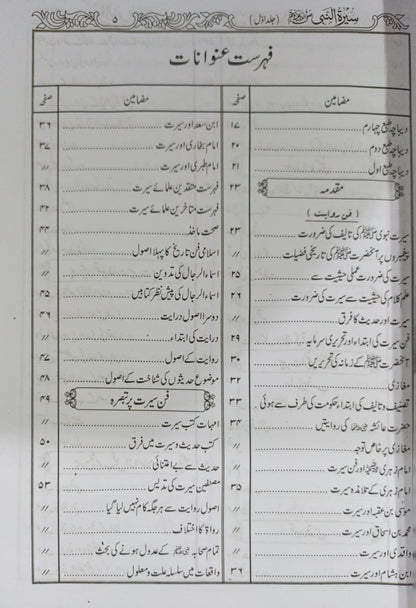 سیرۃ النبی ﷺ (جلد اول) ۵
فہرست عنوانات
مضامین صفحہ
دیباچہ طبع چہارم ۱۷
دیباچہ طبع دوم ۲۰
دیباچہ طبع اول ۲۱
مقدمہ ۲۳
(فن روایت)
سیرت نبوی ﷺ کی تالیف کی ضرورت ۲۳
پیغمبروں پر آنحضرت ﷺ کی تاریخی فضیلت 〃
سیرت کی ضرورت عملی حیثیت سے ۲۵
علم کلام کی حیثیت سے سیرت کی ضرورت ۲۶
سیرت اور حدیث کا فرق 〃
فن سیرت کی ابتداء اور تحریری سرمایہ ۲۹
آنحضرت ﷺ کے زمانہ کی تحریریں ۳۰
مغازی ۳۲
تصنیف و تالیف کی ابتداء حکومت کی طرف سے ہوئی ۳۳
حضرت عائشہ رضی اللہ عنہا کی روایتیں ۳۴
مغازی پر خاص توجہ 〃
امام زہری اور فن سیرت 〃
امام زہری کے تلامذہ سیرت ۳۵
موسیٰ بن عقبہ اور سیرت 〃
محمد بن اسحاق اور سیرت 〃
واقدی اور سیرت 〃
ابن ہشام اور سیرت ۳۶
مضامین صفحہ
ابن سعد اور سیرت ۳۶
امام بخاری اور سیرت ۳۷
امام طبری اور سیرت 〃
فہرست متقدمین علمائے سیرت ۳۸
فہرست متاخرین علمائے سیرت ۴۲
صحت ماخذ ۴۴
اسلامی فن تاریخ کا پہلا اصول 〃
اسماء الرجال کی تدوین 〃
اسماء الرجال کی پیش نظر کتابیں ۴۵
دوسرا اصول درایت ۴۶
درایت کی ابتداء 〃
روایت کے اصول ۴۷
موضوع حدیثوں کی شناخت کے اصول ۴۸
فن سیرت پر تبصرہ ۴۹
امہات کتب سیرت 〃
کتب حدیث و سیرت میں فرق ۵۰
حدیث سے بے اعتنائی 〃
مصنفین سیرت کی تدلیس ۵۳
اصول روایت سے ہر جگہ کام نہیں لیا گیا 〃
رواۃ کا اختلاف 〃
تمام صحابہ رضی اللہ عنہم کے عدول ہونے کی بحث 〃
واقعات میں سلسلہ علت و معلول 〃